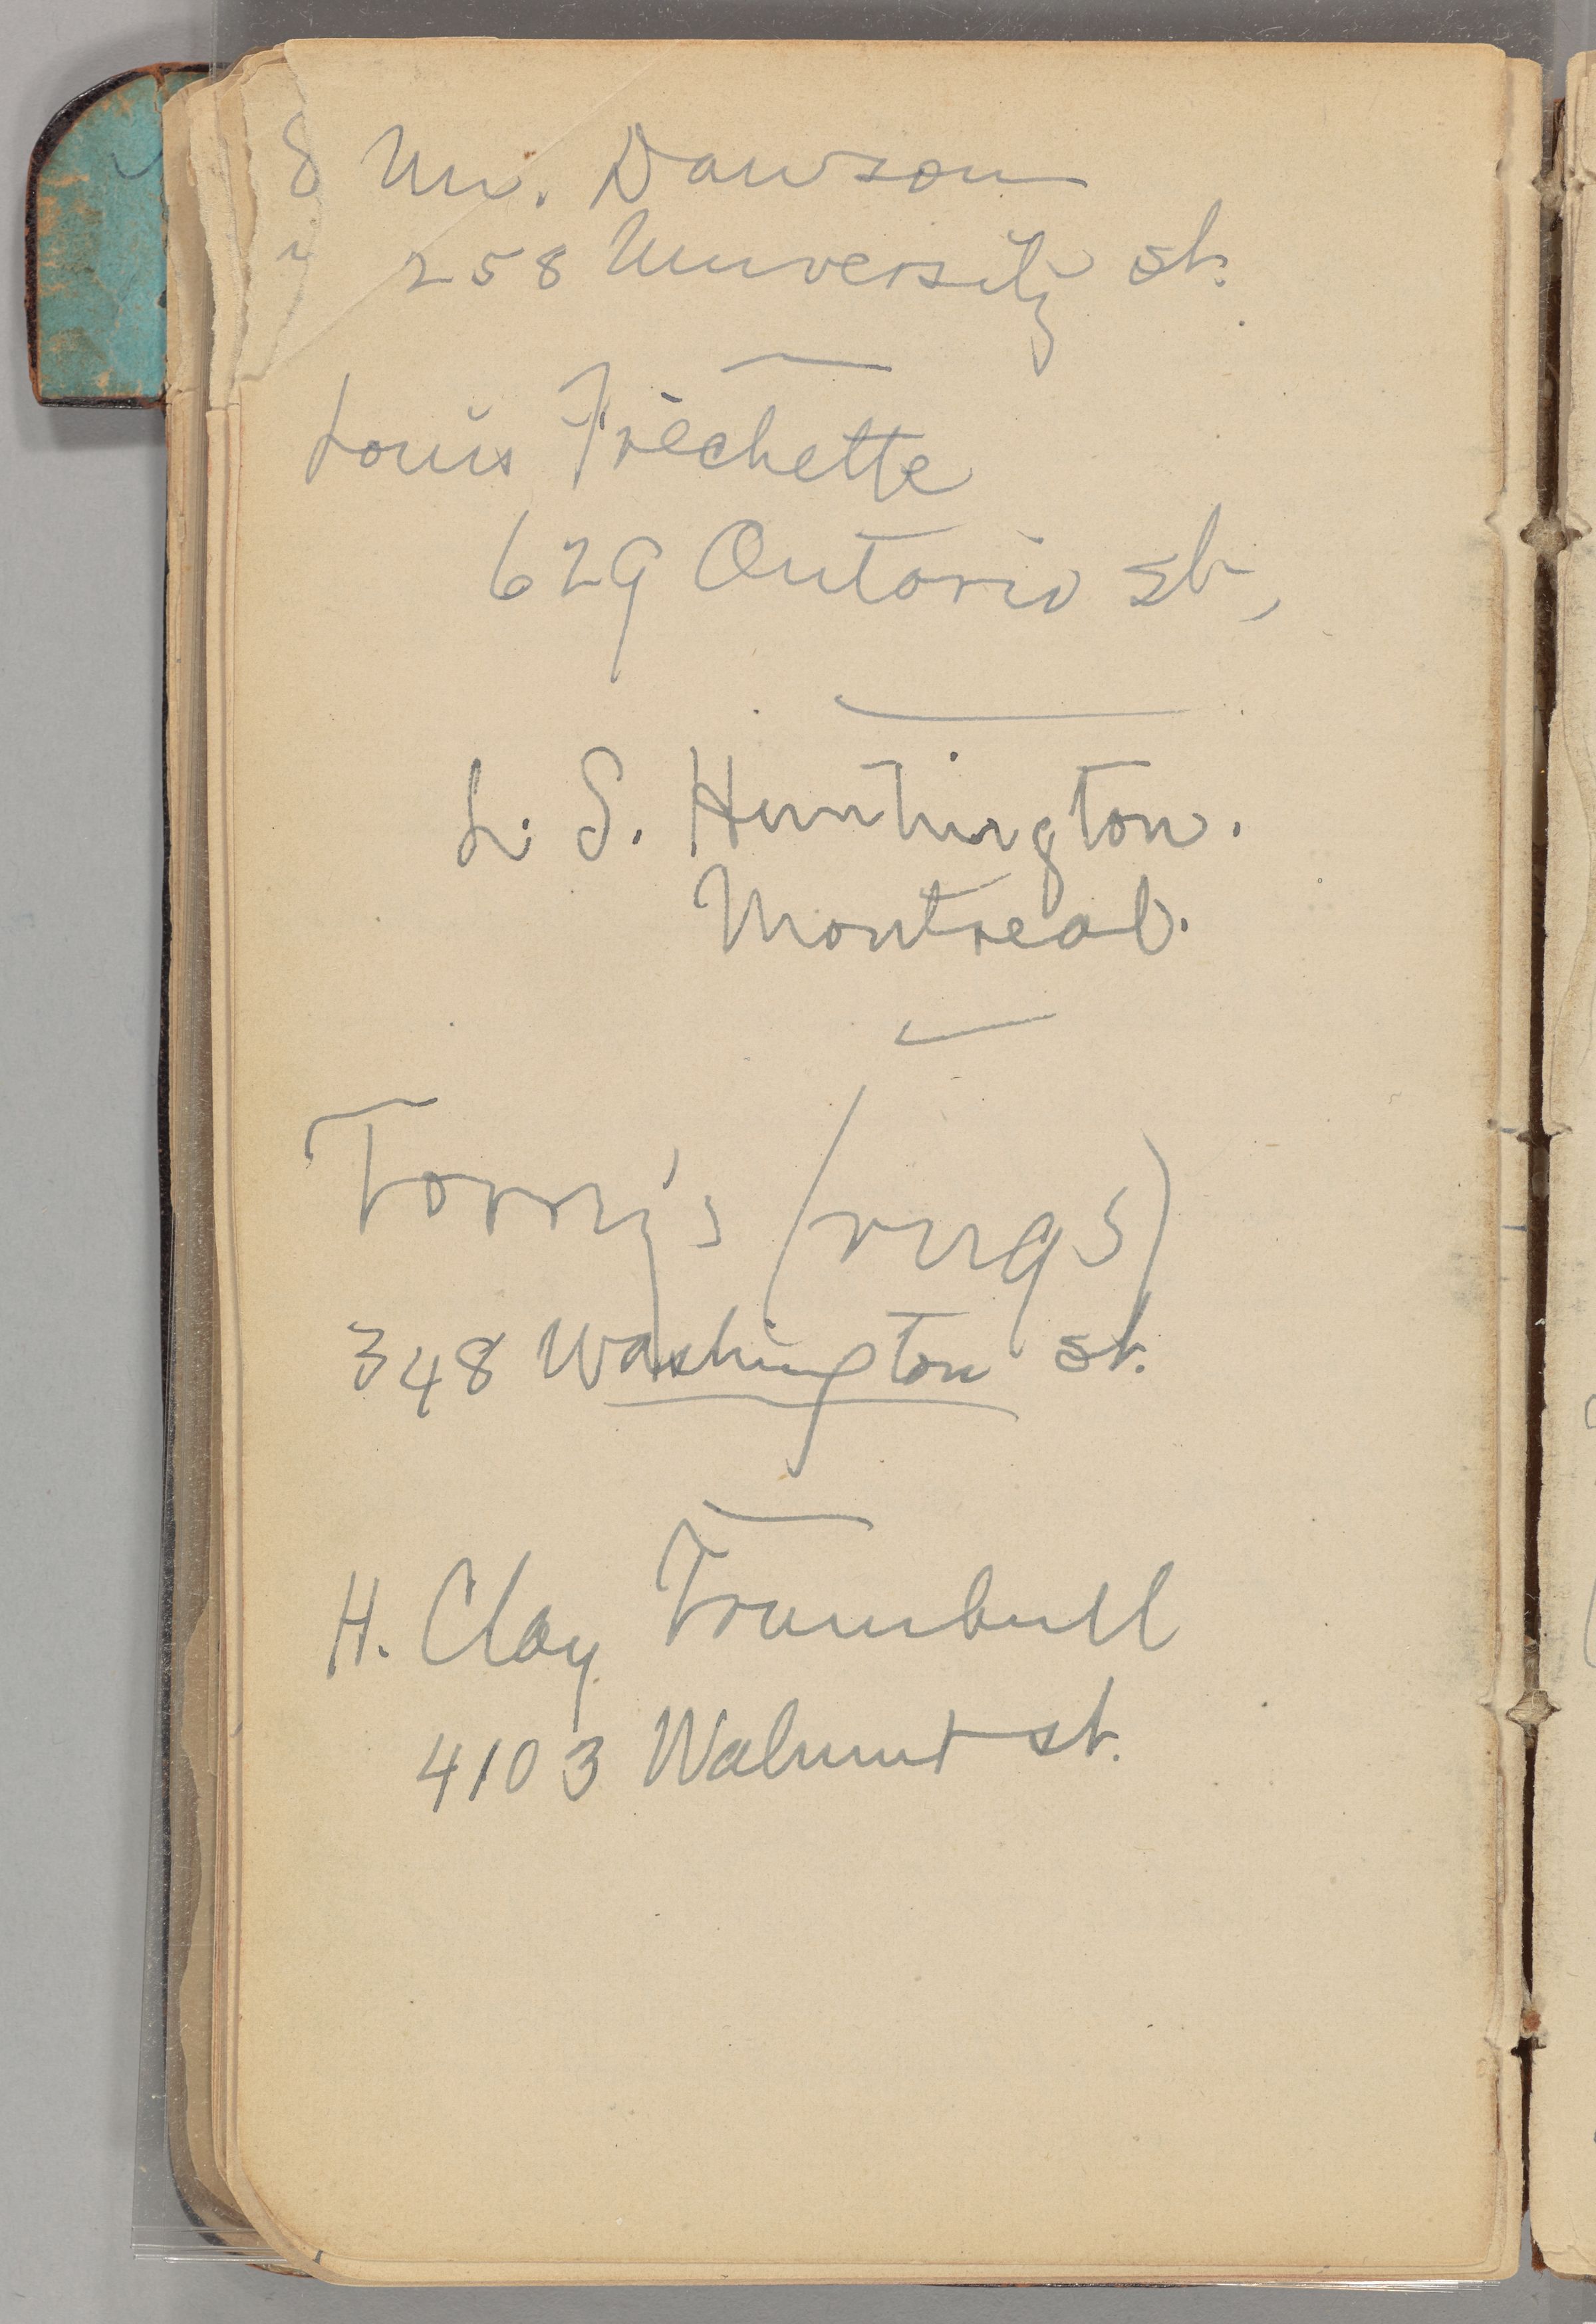 8 Mr. Dawson
258 University st.
Louis Fréchette
629 Ontario st,
L. S. Huntington.
Montreal.
Torrey's (rugs)
348 Washington st.
H. Clay Trumbull
4103 Walnut st.